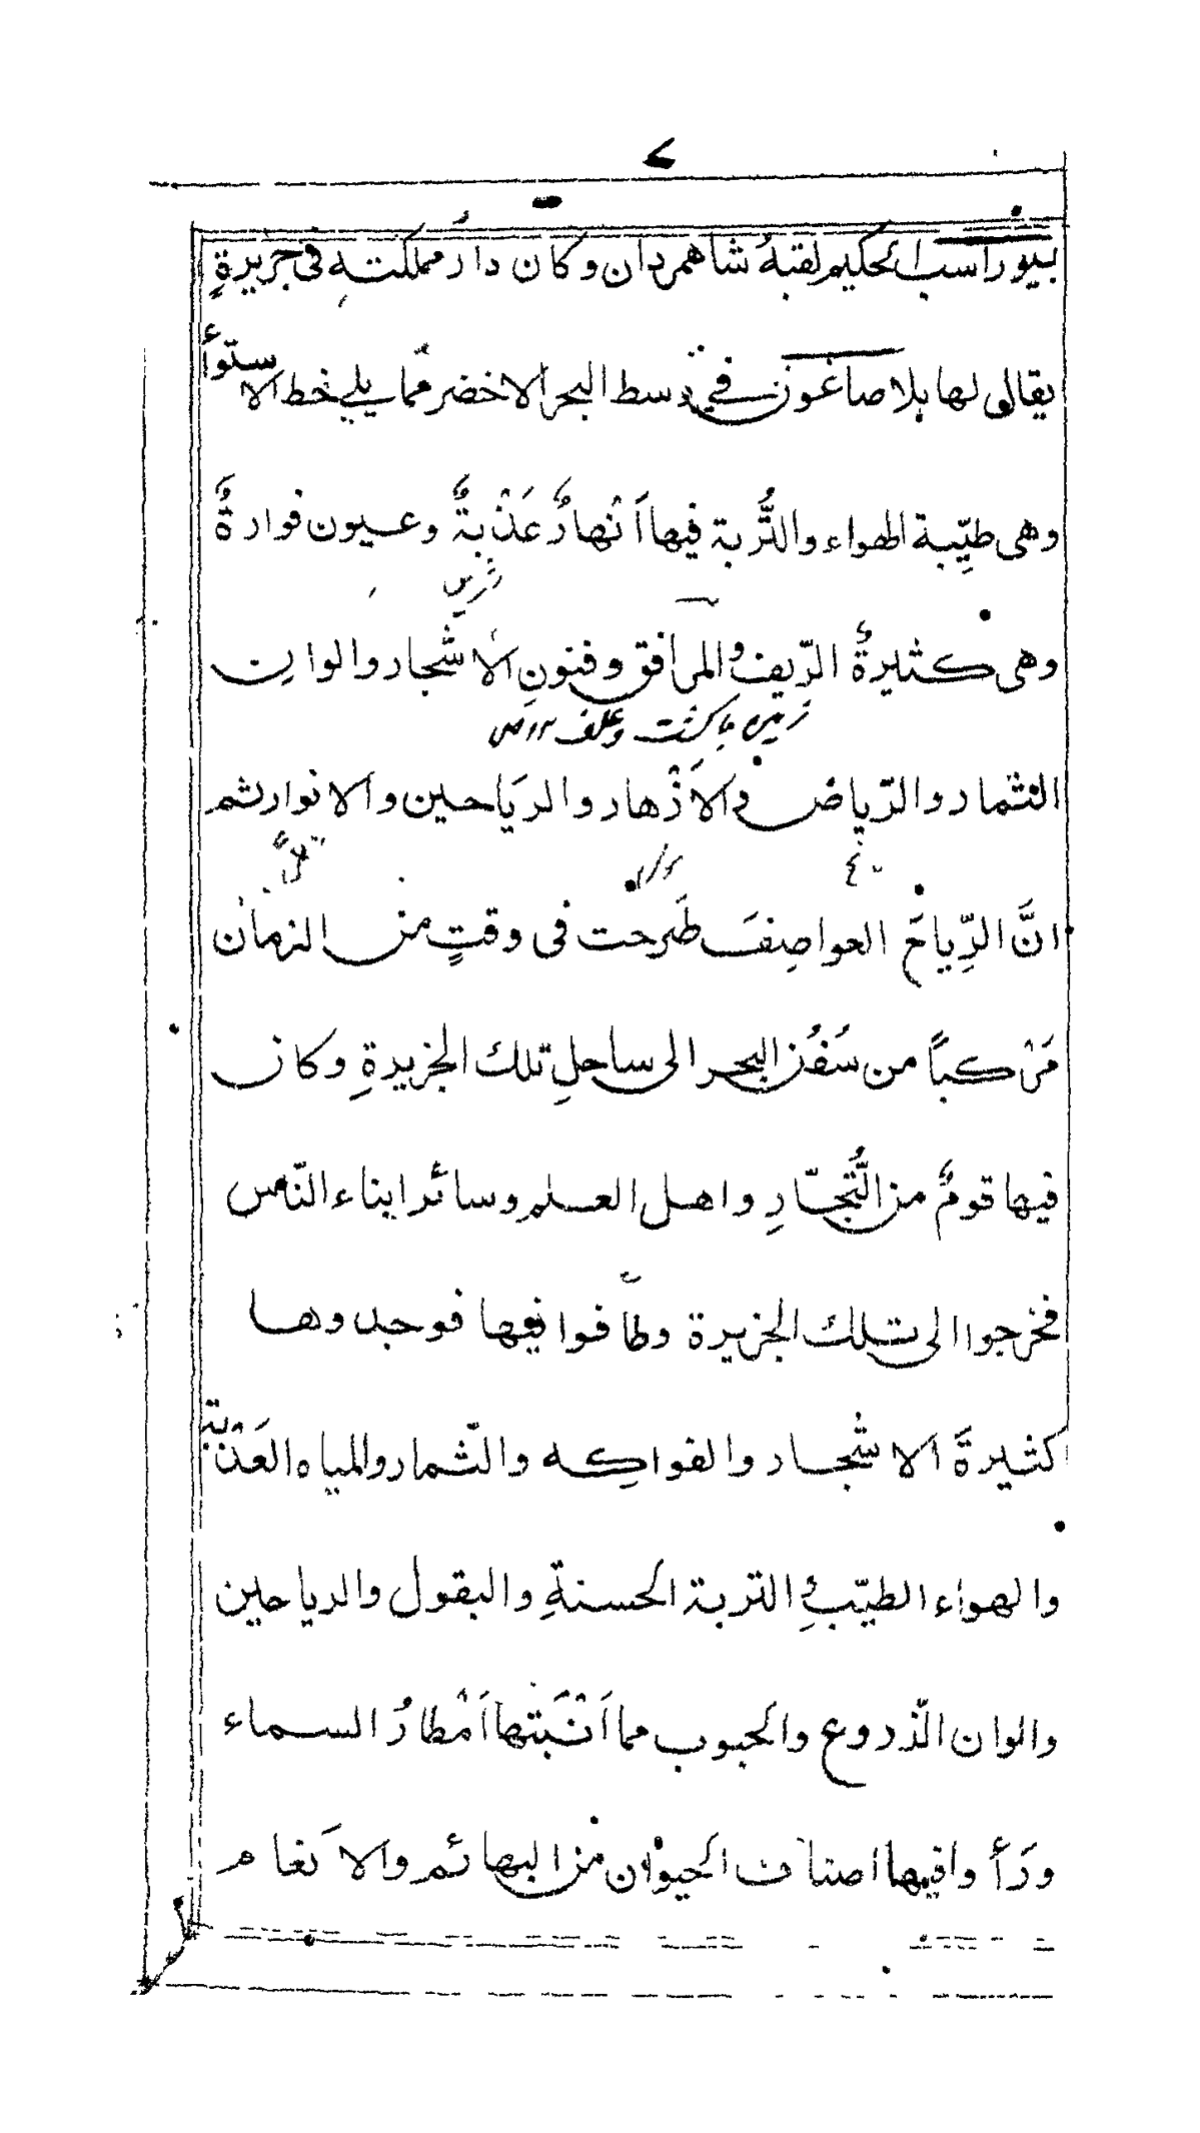 بيوراسب الحكيم لقبهُ شاهمردان وكان دار مملكتهِ فى جزيرةٍ
يقال لها بلاصاغون في وسط البحر الاخضر ممّا يلي خط الاستوأ
وهى طيّبة الهواء والتُّربة فيها اَنْهارٌ عَذْبةٌ وعيون فوارةٌ
وهى كثيرةٌ الرّيف والمرافق وفنونِ الاشجار والوان
زمين با كشت وعلف
الثمار والرّياض والاَزْهار والريَاحين والانوار ثم
انَّ الرِّياحَ العواصِفَ طَرحت فى وقتٍ من الزمان
مَرْكباً من سَفُن البحر الى ساحلِ تلك الجزيرةِ وكان
فيها قومٌ من التُّجّارِ واهل العلم وسائر ابناء النّاس
فخرجوا الى تلك الجزيرة وطافوا فيها فوجدوها
كثيرةَ الاشجار والفواكِه والثّمار والمياه العَذْبة
والهواء الطيّبِ والتربة الحسنةِ والبقول والرياحين
والوان الزّروع والحبوب مما اَنْبَتْها اَمْطارُ السماء
ورَأوا فيها اصناف الحيوان من البهائم والاَنعام